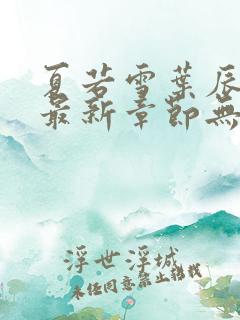 夏若雪葉辰
最新章節無
浮世浮城
未经同意禁止转载